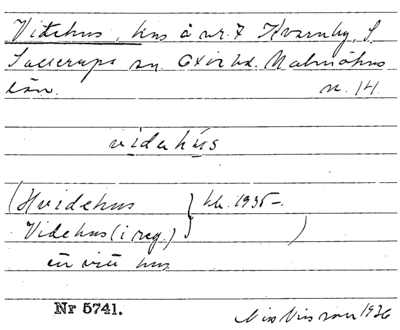 Vitehus, hus å nr. 7 Kvarnby, S.
Sallerups sn. Oxie hd. Malmöhus
län. n. 14.
videhús
(Hvidehus } kk. 1935-.
Videhus (i reg.) )
ett vitt hus
Nr 5741. Nils Nilsson 1936